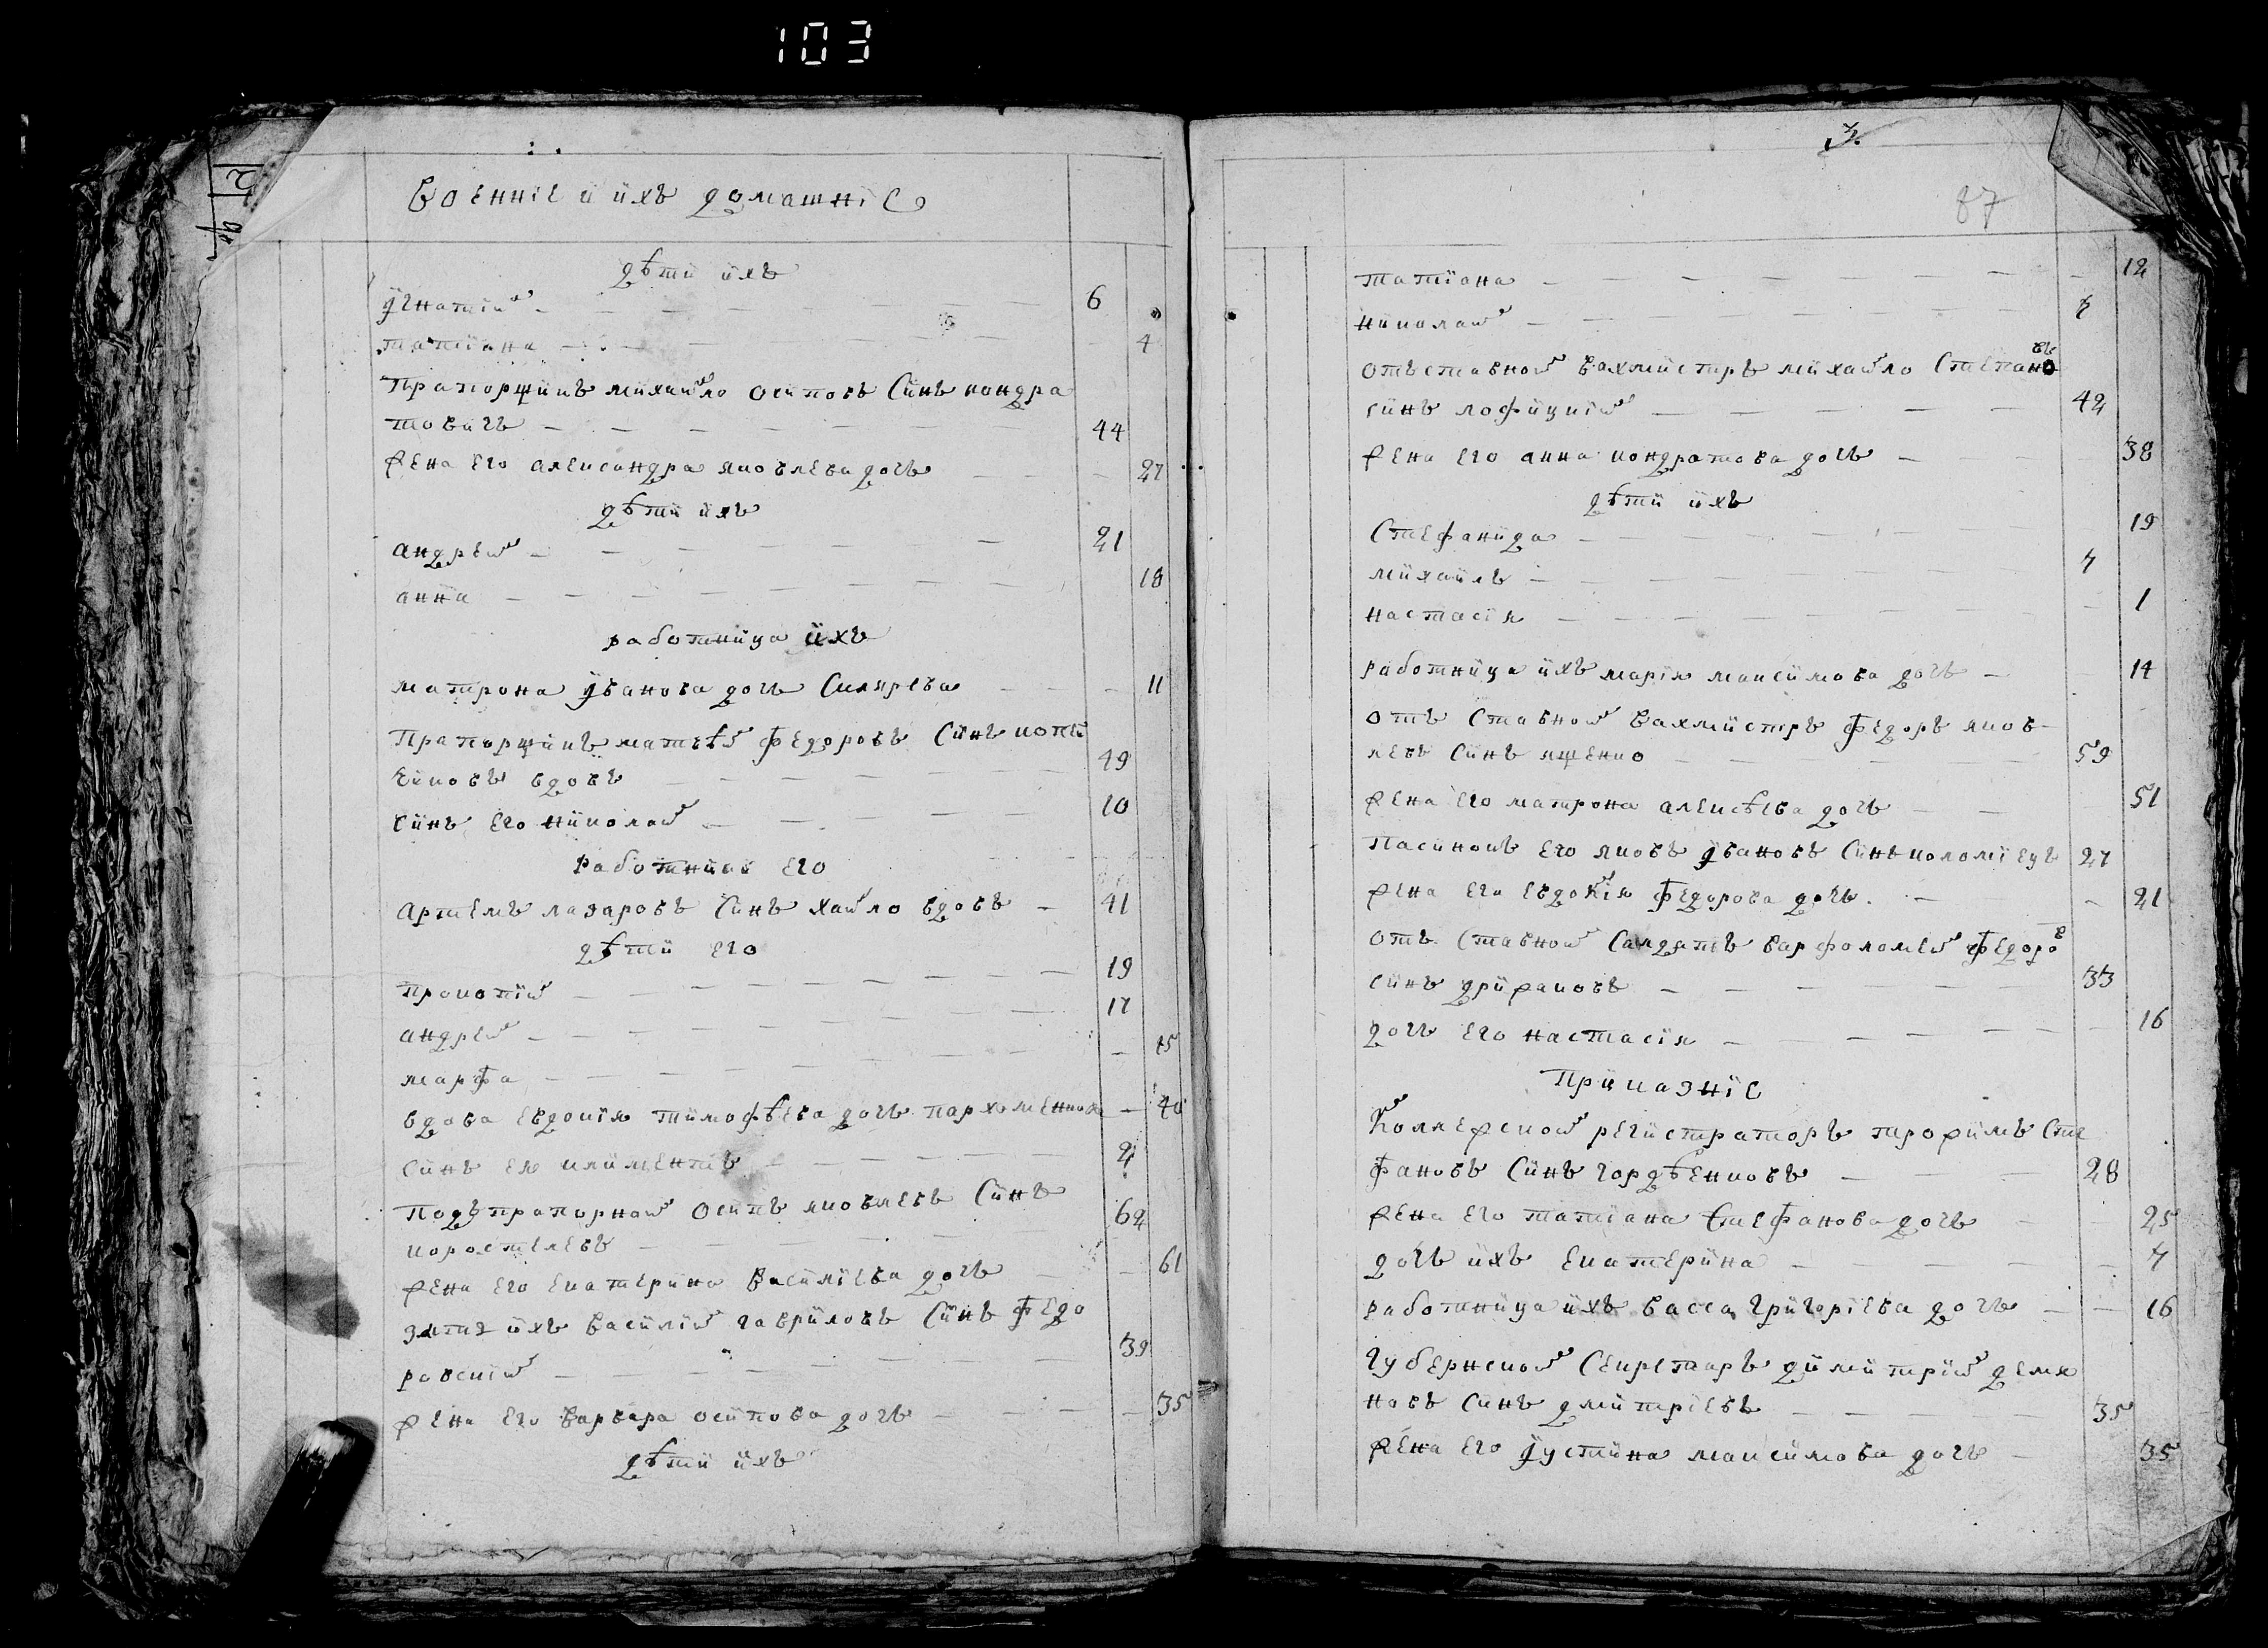 103
Военніе и ихъ домашніе
дѣти ихъ
Игнатій 6
татіана 4
Прапорщикъ михайло осиповъ Синъ кондра
товичъ 44
жена его александра яковлева дочь 27
дѣти ихъ
андрей 21
анна 18
работница ихъ
матрона Иванова дочь Склярева 11
Прапорщикъ матвѣй федоровъ Синъ копи
чиковъ вдовъ 49
Синъ его николай 10
работникъ его
артемъ лазаровъ Синъ хайло вдовъ 41
дѣти его
прокопій 19
андрей 17
марфа 15
вдова евдокія тимофѣева дочь пархоменкова 40
синъ ея климентъ
Подъпрапорной осипъ яковлевъ Синъ
коростелевъ 62
жена его екатерина василіева дочь 61
зять ихъ василій гавриловъ Синъ федо
ровскій 39
жена его варвара осипова дочь 35
дѣти ихъ
87
татіана 12
николай
отъставной вахмистръ михайло Степановъ
синъ лофицкій 42
жена его анна кондратова дочь 38
дѣти ихъ
Стефанида 19
михаилъ 4
настасія 1
работница ихъ марія максимова дочь 14
отъ Ставной вахмистръ федоръ яков
левъ Синъ ященко 59
жена его матрона алексѣева дочь 51
Пасинокъ его яковъ Ивановъ Синъ коломіецъ 27
жена его евдокія федорова дочь 21
отъ Ставной Салдатъ варфоломей федоров
синъ дрижаковъ 33
дочь его настасія 16
Приказніе
Коллежской регистраторъ трофимъ Сте
фановъ Синъ гордѣенковъ 28
жена его татіана Стефанова дочь 25
дочь ихъ екатерина 4
работница ихъ васса григоріева дочь 16
Губернской Секретарь димитрій демя
новъ Синъ дмитріевъ 35
жена его Иустина максимова дочь 35